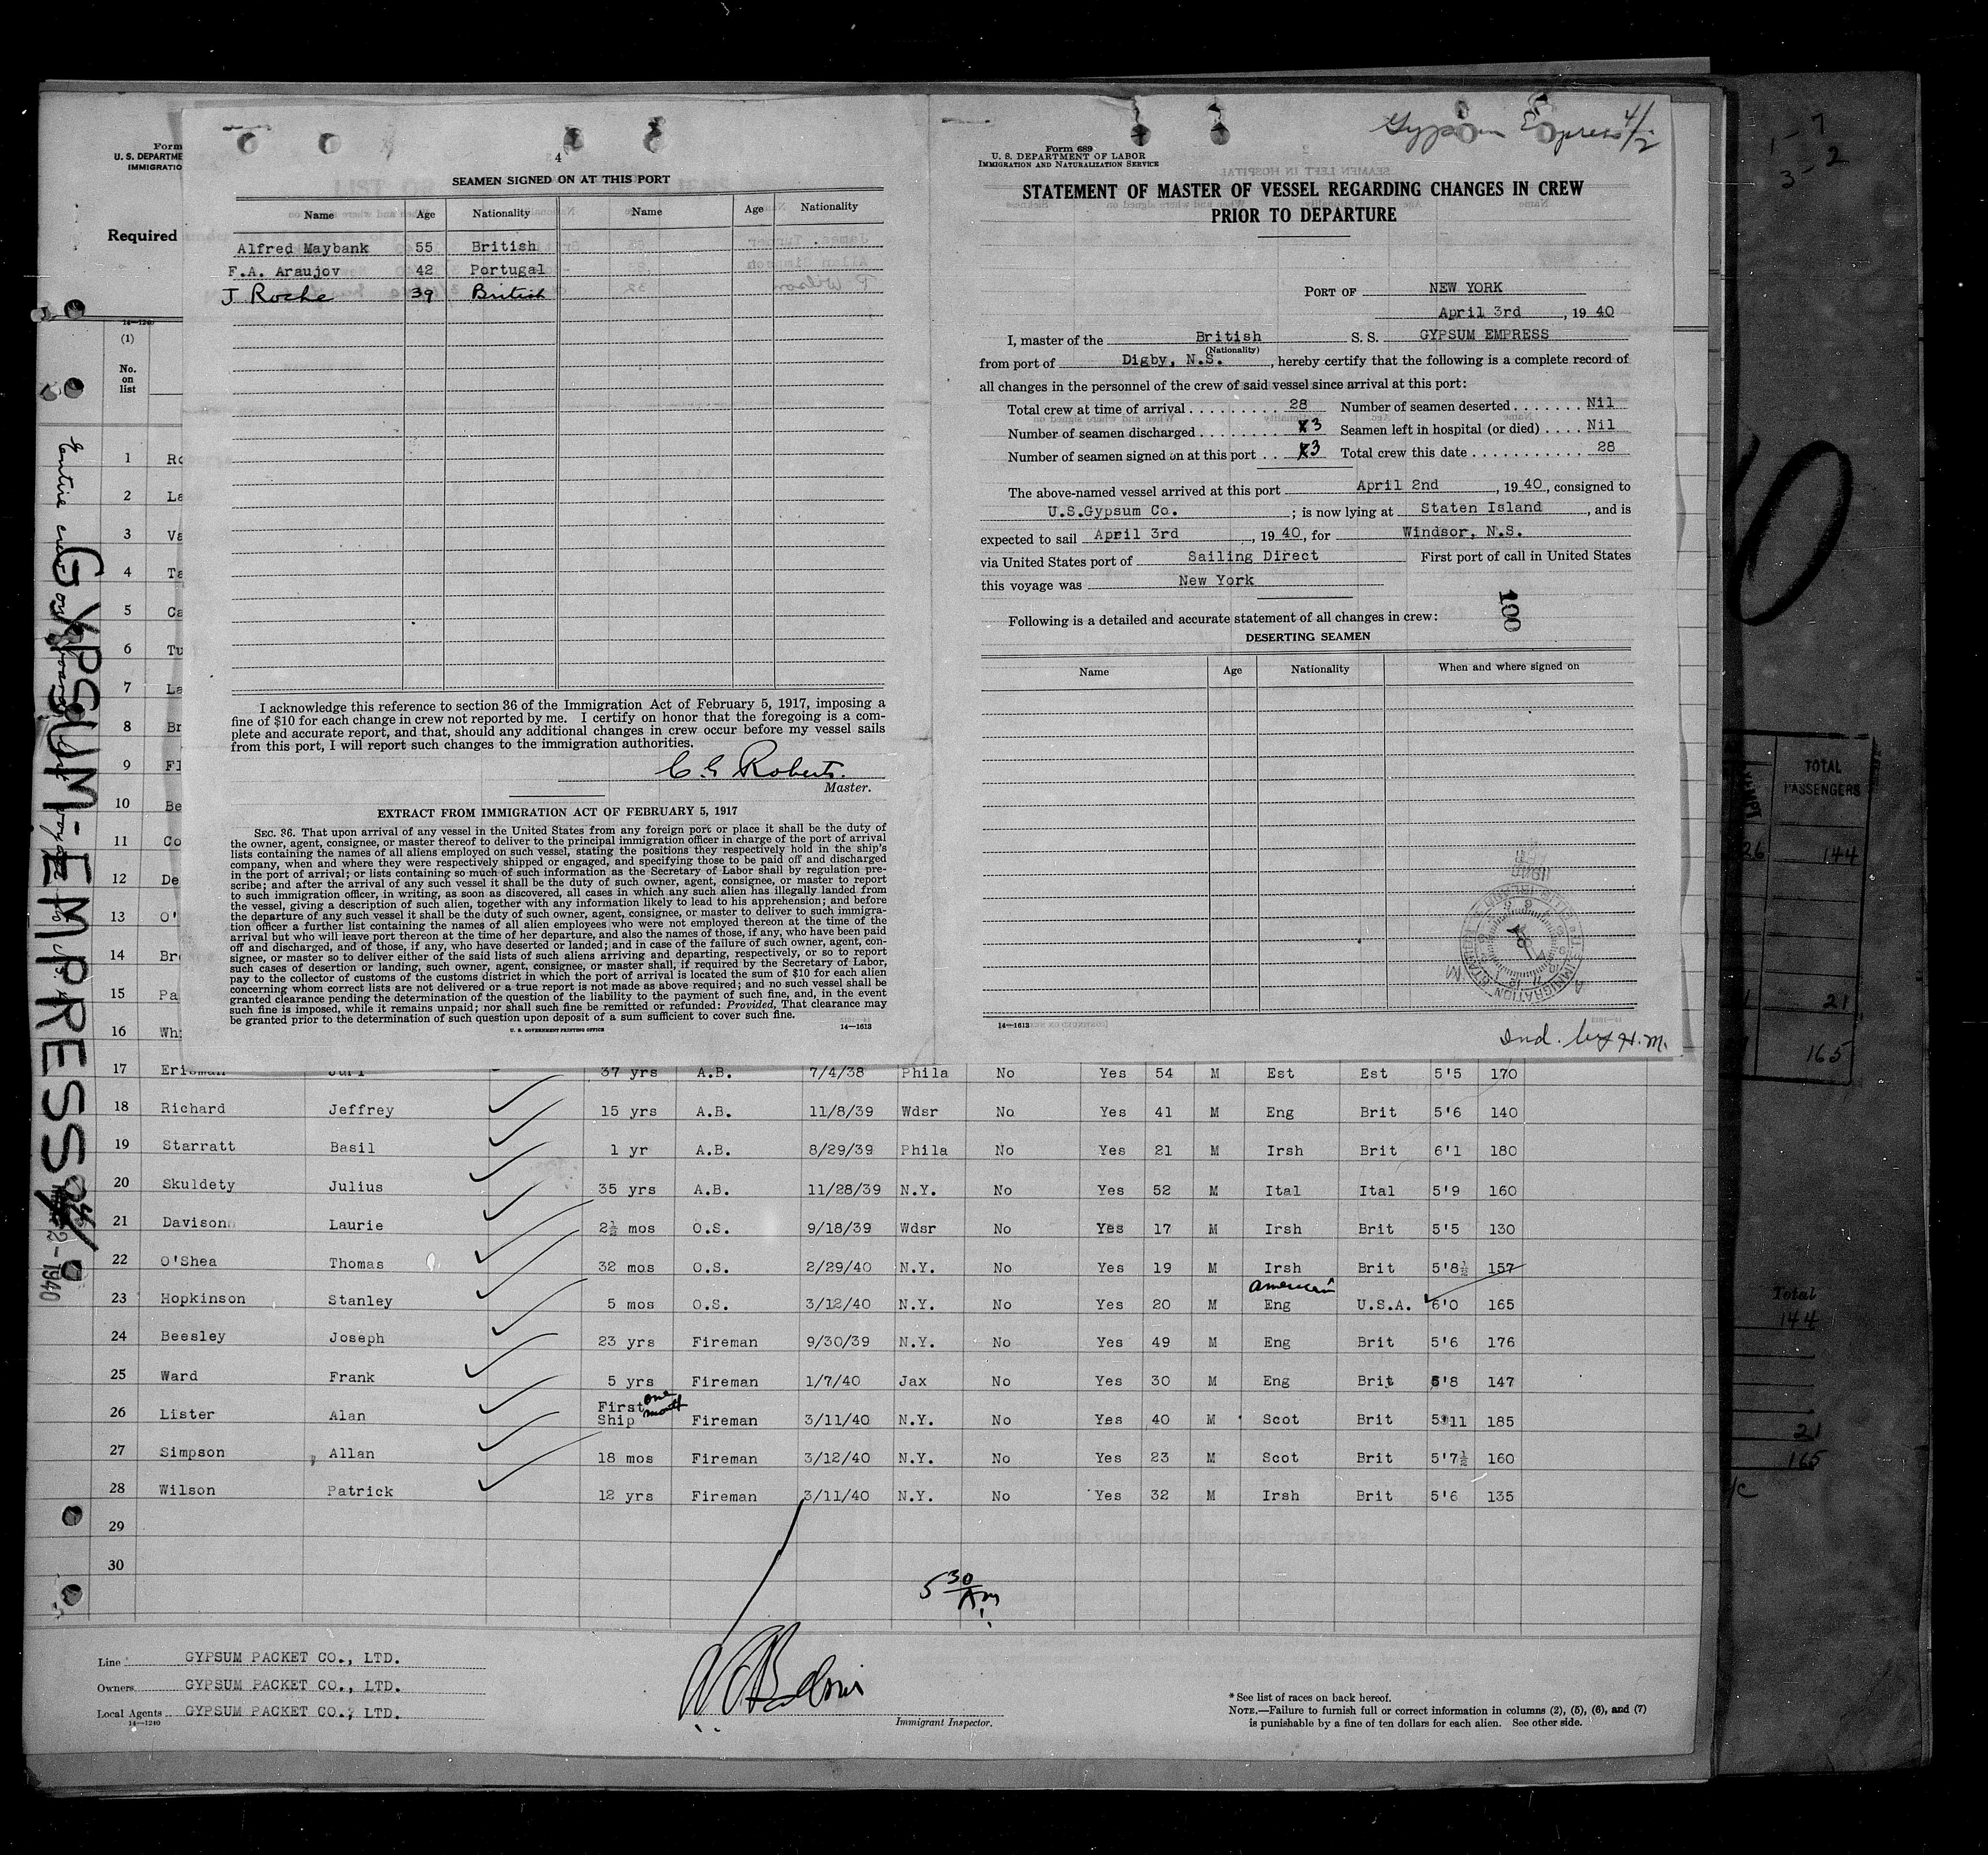 Form
U. S. DEPARTME
IMMIGRATIO
Required
14—1240
(1)
No.
on
list
1 Ro
2 La
3 Va
4 Ta
5 Ca
6 Tu
7 La
8 Br
9 Fl
10 Be
11 Co
12 De
13 O'
14 Bro
15 Pa
16 Wh
GYPSUM EMPRESS
4
SEAMEN SIGNED ON AT THIS PORT
Name Age Nationality Name Age Nationality
Alfred Maybank 55 British
F.A. Araujov 42 Portugal
J Roche 39 British
I acknowledge this reference to section 36 of the Immigration Act of February 5, 1917, imposing a
fine of $10 for each change in crew not reported by me. I certify on honor that the foregoing is a com-
plete and accurate report, and that, should any additional changes in crew occur before my vessel sails
from this port, I will report such changes to the immigration authorities.
C G Roberts.
Master.
EXTRACT FROM IMMIGRATION ACT OF FEBRUARY 5, 1917
SEC. 36. That upon arrival of any vessel in the United States from any foreign port or place it shall be the duty of
the owner, agent, consignee, or master thereof to deliver to the principal immigration officer in charge of the port of arrival
lists containing the names of all aliens employed on such vessel, stating the positions they respectively hold in the ship's
company, when and where they were respectively shipped or engaged, and specifying those to be paid off and discharged
in the port of arrival; or lists containing so much of such information as the Secretary of Labor shall by regulation pre-
scribe; and after the arrival of any such vessel it shall be the duty of such owner, agent, consignee, or master to report
to such immigration officer, in writing, as soon as discovered, all cases in which any such alien has illegally landed from
the vessel, giving a description of such alien, together with any information likely to lead to his apprehension; and before
the departure of any such vessel it shall be the duty of such owner, agent, consignee, or master to deliver to such immigra-
tion officer a further list containing the names of all alien employees who were not employed thereon at the time of the
arrival but who will leave port thereon at the time of her departure, and also the names of those, if any, who have been paid
off and discharged, and of those, if any, who have deserted or landed; and in case of the failure of such owner, agent, con-
signee, or master so to deliver either of the said lists of such aliens arriving and departing, respectively, or so to report
such cases of desertion or landing, such owner, agent, consignee, or master shall, if required by the Secretary of Labor,
pay to the collector of customs of the customs district in which the port of arrival is located the sum of $10 for each alien
concerning whom correct lists are not delivered or a true report is not made as above required; and no such vessel shall be
granted clearance pending the determination of the question of the liability to the payment of such fine, and, in the event
such fine is imposed, while it remains unpaid; nor shall such fine be remitted or refunded: Provided, That clearance may
be granted prior to the determination of such question upon deposit of a sum sufficient to cover such fine.
U. S. GOVERNMENT PRINTING OFFICE 14—1613
Gypsum Empress 4/2
Form 689
U. S. DEPARTMENT OF LABOR
IMMIGRATION AND NATURALIZATION SERVICE
STATEMENT OF MASTER OF VESSEL REGARDING CHANGES IN CREW
PRIOR TO DEPARTURE
PORT OF NEW YORK
April 3rd, 1940
I, master of the British S. S. GYPSUM EMPRESS
(Nationality)
from port of Digby, N.S., hereby certify that the following is a complete record of
all changes in the personnel of the crew of said vessel since arrival at this port:
Total crew at time of arrival 28 Number of seamen deserted Nil
Number of seamen discharged 3 Seamen left in hospital (or died) Nil
Number of seamen signed on at this port 3 Total crew this date 28
The above-named vessel arrived at this port April 2nd, 1940, consigned to
U.S.Gypsum Co.; is now lying at Staten Island, and is
expected to sail April 3rd, 1940, for Windsor, N.S.
via United States port of Sailing Direct First port of call in United States
this voyage was New York
100
Following is a detailed and accurate statement of all changes in crew:
DESERTING SEAMEN
Name Age Nationality When and where signed on
14—1613
Ind. by H.M.
17 37 yrs A.B. 7/4/38 Phila No Yes 54 M Est Est 5'5 170
18 Richard Jeffrey 15 yrs A.B. 11/8/39 Wdsr No Yes 41 M Eng Brit 5'6 140
19 Starratt Basil 1 yr A.B. 8/29/39 Phila No Yes 21 M Irsh Brit 6'1 180
20 Skuldety Julius 35 yrs A.B. 11/28/39 N.Y. No Yes 52 M Ital Ital 5'9 160
21 Davison Laurie 2½ mos O.S. 9/18/39 Wdsr No Yes 17 M Irsh Brit 5'5 130
22 O'Shea Thomas 32 mos O.S. 2/29/40 N.Y. No Yes 19 M Irsh Brit 5'8½ 157
american
23 Hopkinson Stanley 5 mos O.S. 3/12/40 N.Y. No Yes 20 M Eng U.S.A. 6'0 165
24 Beesley Joseph 23 yrs Fireman 9/30/39 N.Y. No Yes 49 M Eng Brit 5'6 176
25 Ward Frank 5 yrs Fireman 1/7/40 Jax No Yes 30 M Eng Brit 5'8 147
26 Lister Alan First Ship one month Fireman 3/11/40 N.Y. No Yes 40 M Scot Brit 5'11 185
27 Simpson, Allan 18 mos Fireman 3/12/40 N.Y. No Yes 23 M Scot Brit 5'7½ 160
28 Wilson Patrick 12 yrs Fireman 3/11/40 N.Y. No Yes 32 M Irsh Brit 5'6 135
29
30
5 30 Am
Line GYPSUM PACKET CO., LTD.
Owners GYPSUM PACKET CO., LTD.
Local Agents GYPSUM PACKET CO., LTD.
14—1240
Immigrant Inspector.
* See list of races on back hereof.
NOTE.—Failure to furnish full or correct information in columns (2), (5), (6), and (7)
is punishable by a fine of ten dollars for each alien. See other side.
TOTAL
PASSENGERS
26 144
21
165
Total
144
21
165